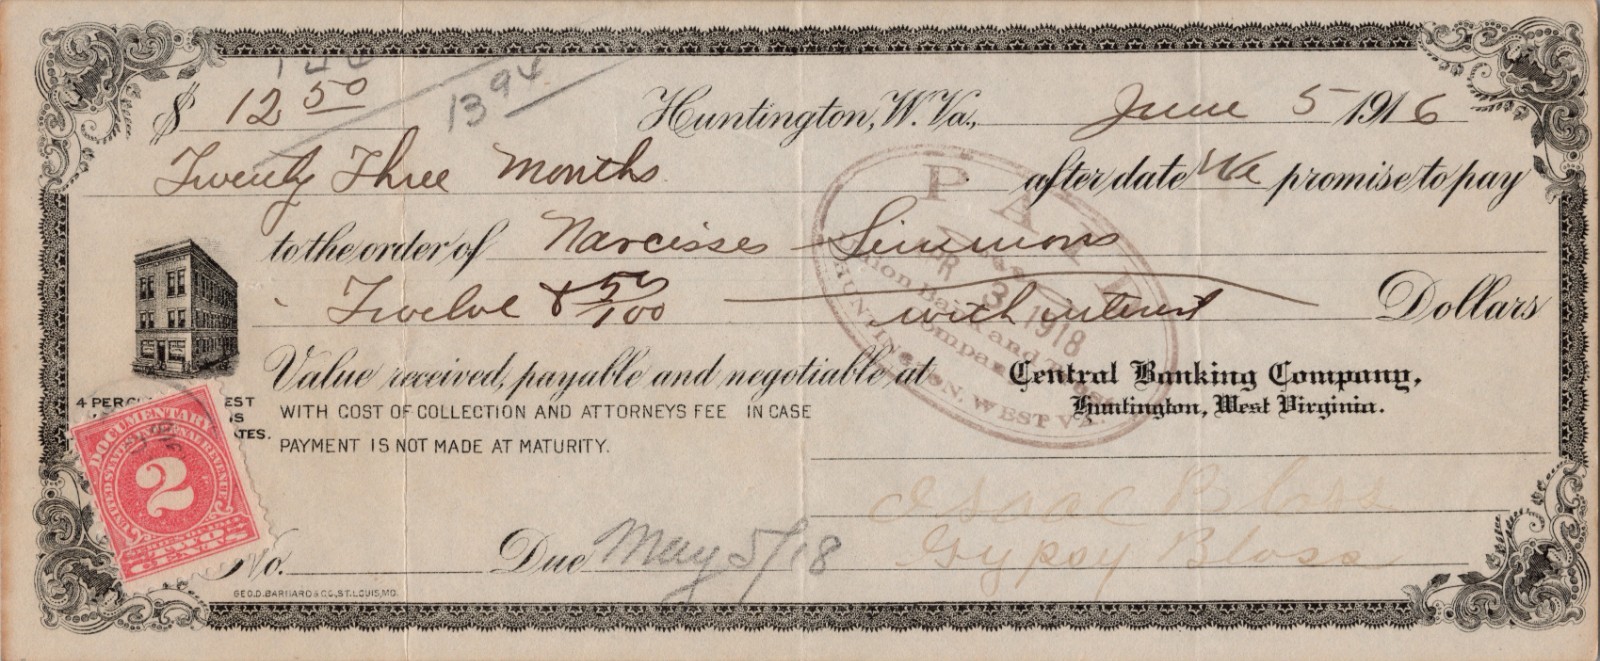 1 44
$ 12 50 13 94 Huntington, W. Va., June 5 1916
Twenty Three Months after date We promise to pay
to the order of Narcisse Simmons
Twelve & 50/100 with interest Dollars
Value received, payable and negotiable at Central Banking Company,
Huntington, West Virginia.
WITH COST OF COLLECTION AND ATTORNEYS FEE IN CASE
PAYMENT IS NOT MADE AT MATURITY.
4 PER EST
TES.
PAID
3 1918
HUNTINGTON, WEST VA.
DOCUMENTARY
UNITED STATES INTERNAL REVENUE
2
TWO
CENTS
Isaac Bloss
Gypsy Bloss
No. Due May 5/18
GEO. D. BARNARD & CO., ST. LOUIS, MO.